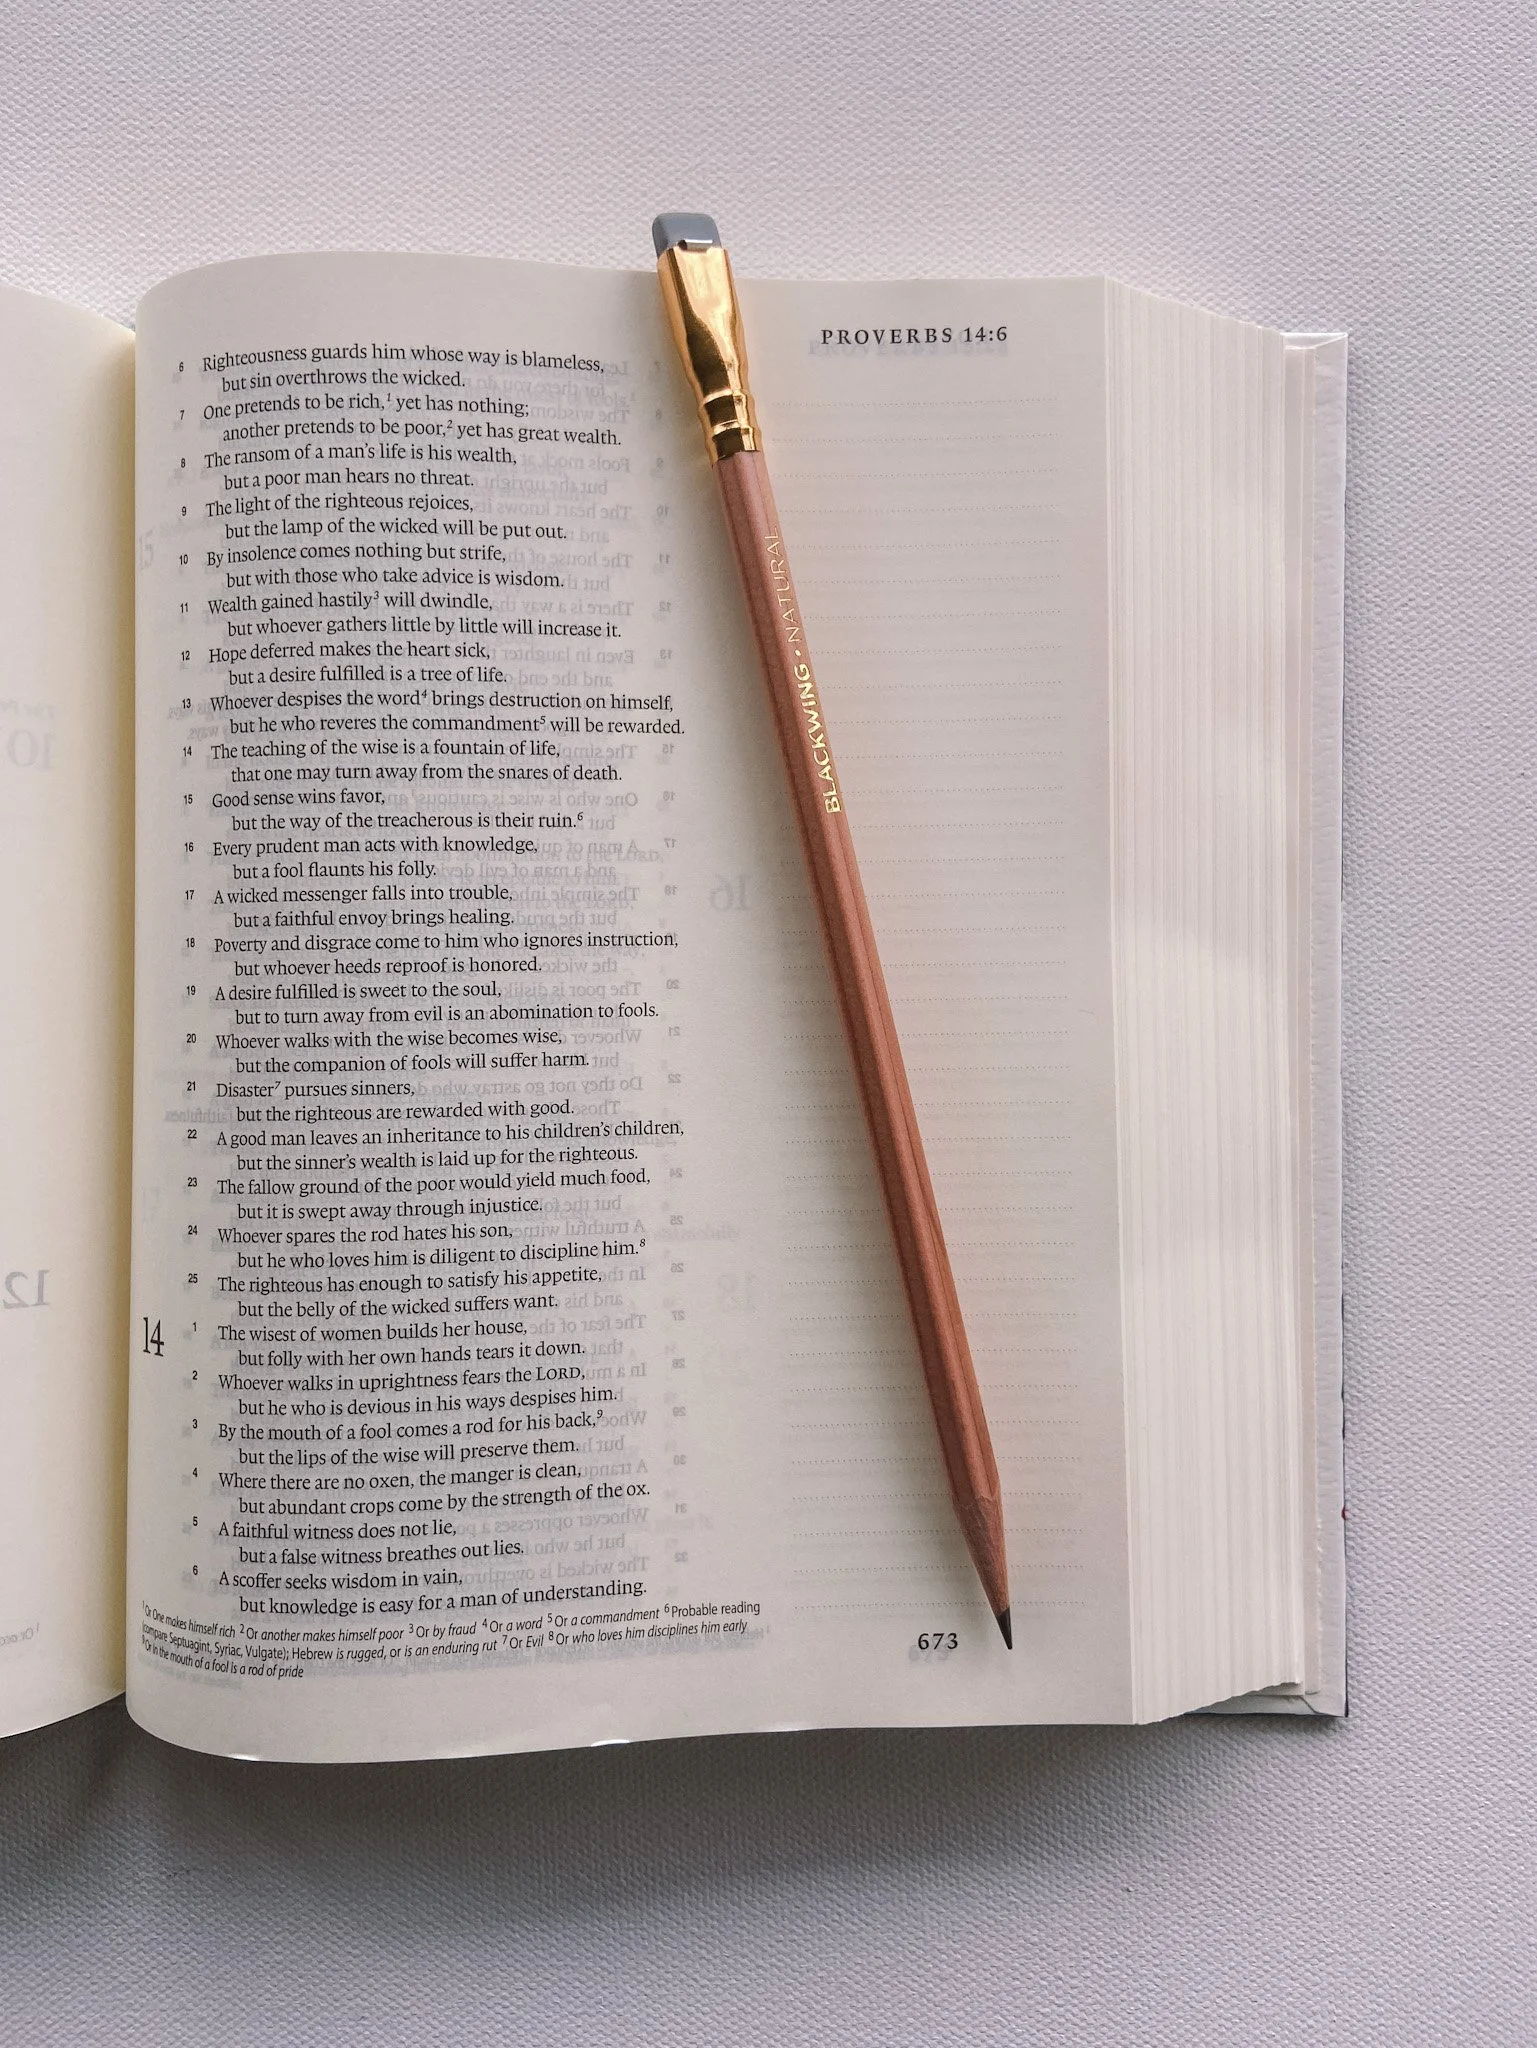 PROVERBS 14:6
6 Righteousness guards him whose way is blameless,
but sin overthrows the wicked.
7 One pretends to be rich,¹ yet has nothing;
another pretends to be poor,² yet has great wealth.
8 The ransom of a man’s life is his wealth,
but a poor man hears no threat.
9 The light of the righteous rejoices,
but the lamp of the wicked will be put out.
10 By insolence comes nothing but strife,
but with those who take advice is wisdom.
11 Wealth gained hastily³ will dwindle,
but whoever gathers little by little will increase it.
12 Hope deferred makes the heart sick,
but a desire fulfilled is a tree of life.
13 Whoever despises the word⁴ brings destruction on himself,
but he who reveres the commandment⁵ will be rewarded.
14 The teaching of the wise is a fountain of life,
that one may turn away from the snares of death.
15 Good sense wins favor,
but the way of the treacherous is their ruin.⁶
16 Every prudent man acts with knowledge,
but a fool flaunts his folly.
17 A wicked messenger falls into trouble,
but a faithful envoy brings healing.
18 Poverty and disgrace come to him who ignores instruction,
but whoever heeds reproof is honored.
19 A desire fulfilled is sweet to the soul,
but to turn away from evil is an abomination to fools.
20 Whoever walks with the wise becomes wise,
but the companion of fools will suffer harm.
21 Disaster⁷ pursues sinners,
but the righteous are rewarded with good.
22 A good man leaves an inheritance to his children’s children,
but the sinner’s wealth is laid up for the righteous.
23 The fallow ground of the poor would yield much food,
but it is swept away through injustice.
24 Whoever spares the rod hates his son,
but he who loves him is diligent to discipline him.⁸
25 The righteous has enough to satisfy his appetite,
but the belly of the wicked suffers want.
14 1 The wisest of women builds her house,
but folly with her own hands tears it down.
2 Whoever walks in uprightness fears the LORD,
but he who is devious in his ways despises him.
3 By the mouth of a fool comes a rod for his back,⁹
but the lips of the wise will preserve them.
4 Where there are no oxen, the manger is clean,
but abundant crops come by the strength of the ox.
5 A faithful witness does not lie,
but a false witness breathes out lies.
6 A scoffer seeks wisdom in vain,
but knowledge is easy for a man of understanding.
¹ Or One makes himself rich ² Or another makes himself poor ³ Or by fraud ⁴ Or a word ⁵ Or a commandment ⁶ Probable reading
(compare Septuagint, Syriac, Vulgate); Hebrew is rugged, or is an enduring rut ⁷ Or Evil ⁸ Or who loves him disciplines him early
⁹ Or In the mouth of a fool is a rod of pride
673
BLACKWING • NATURAL